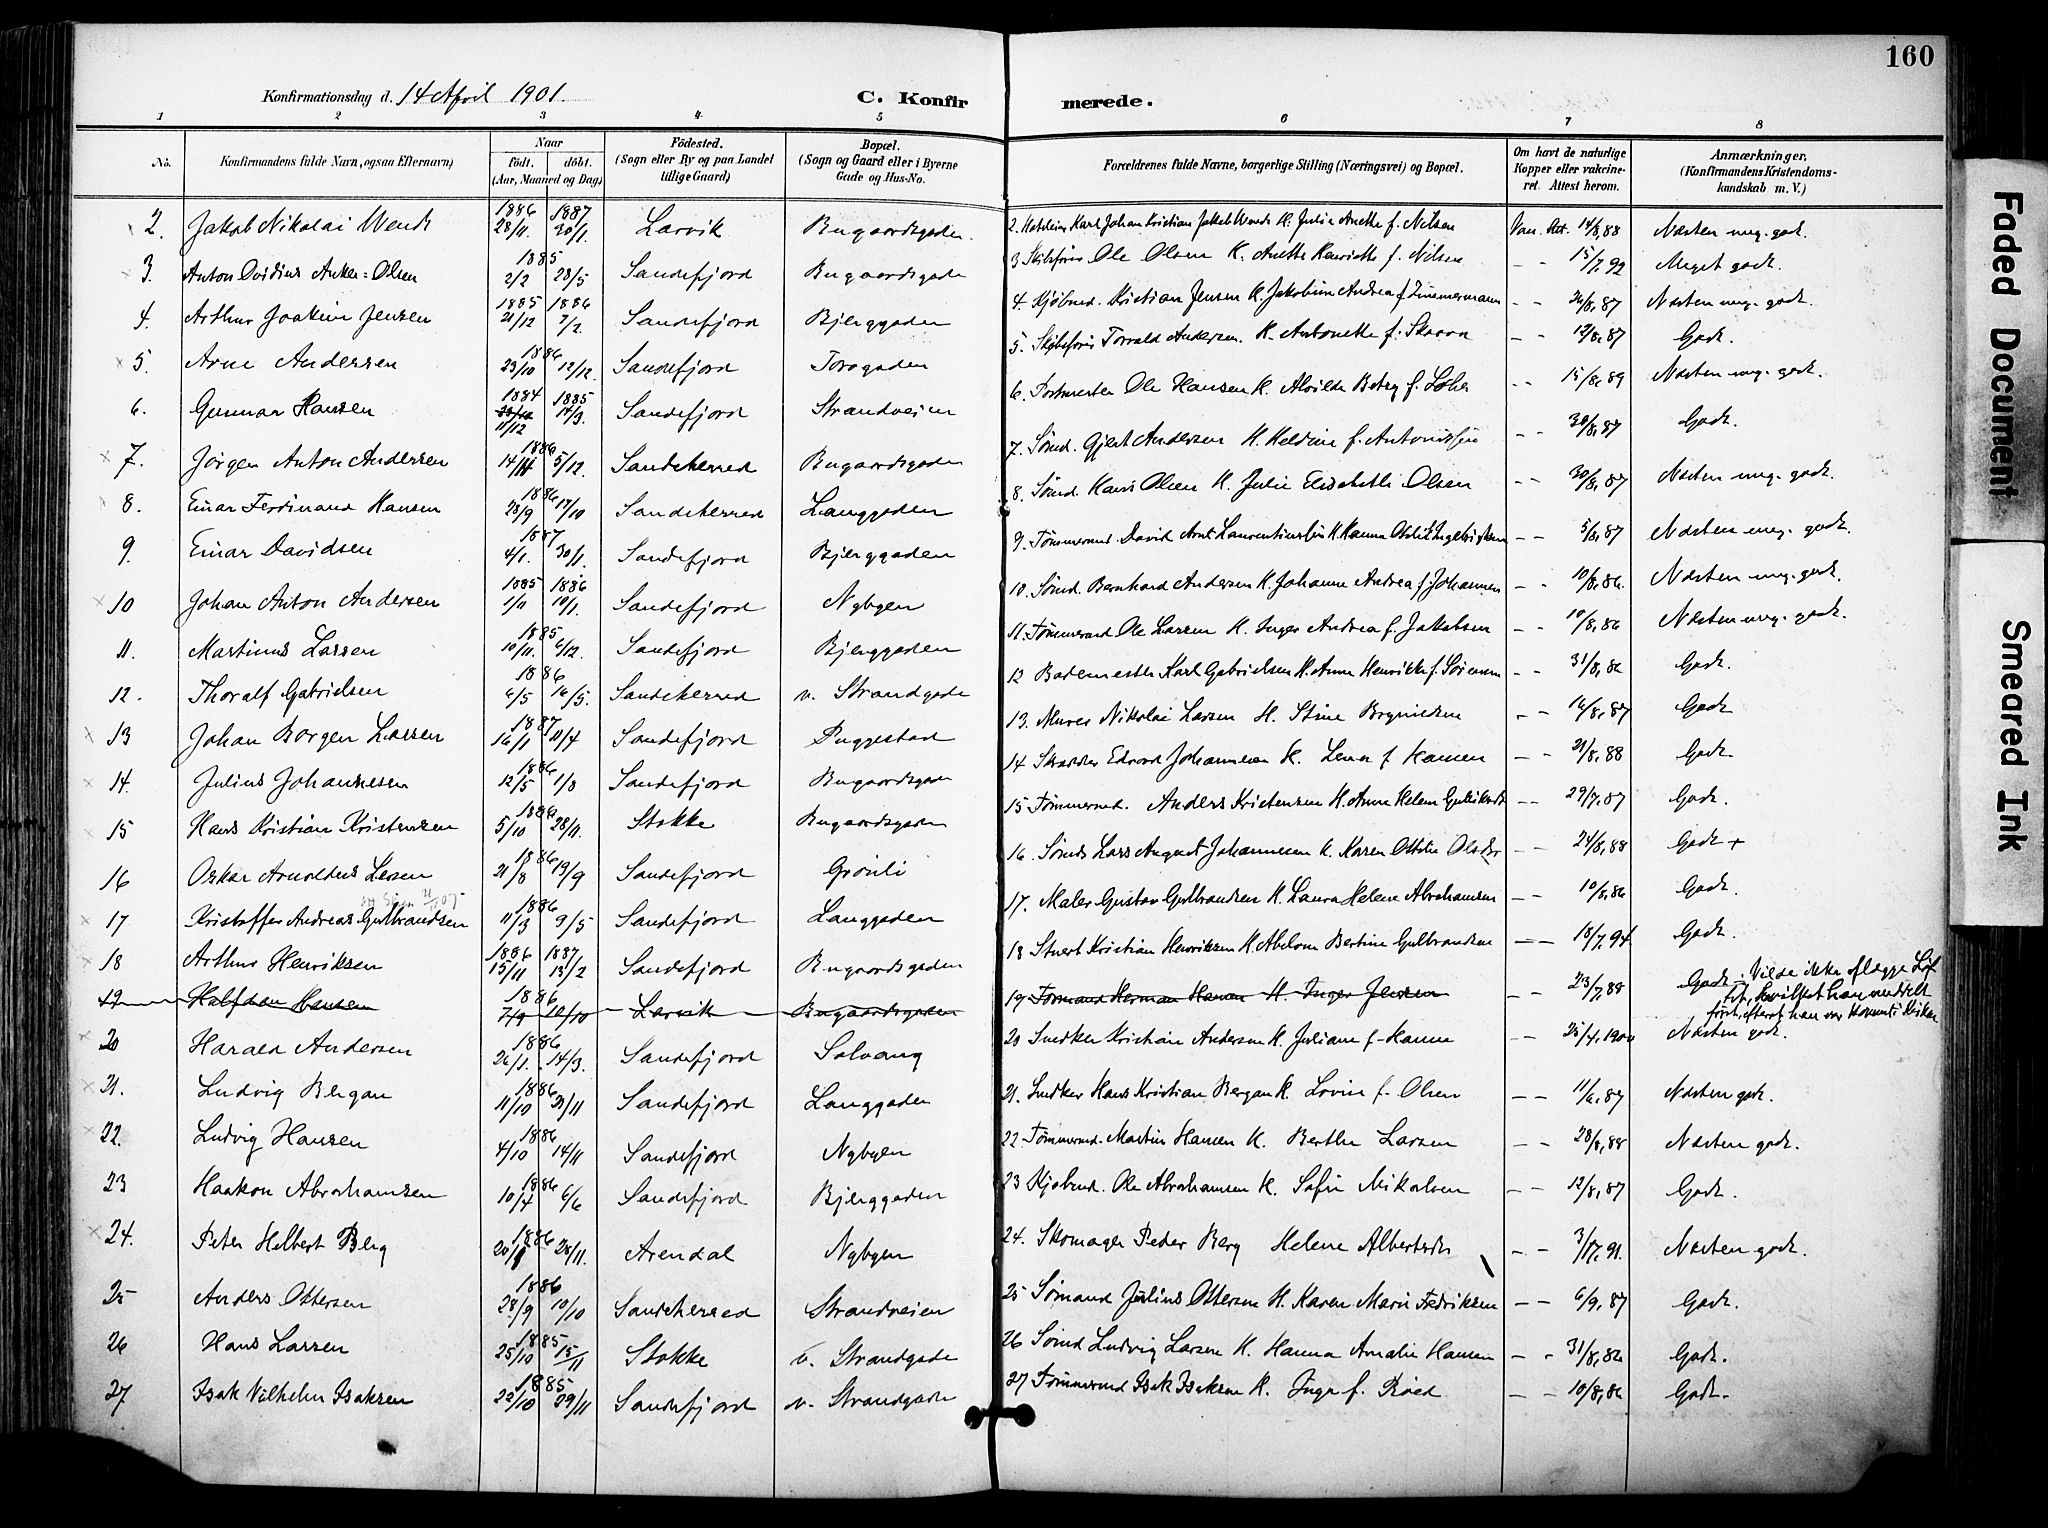 160
Konfirmationsdag d. 14 April 1901.
C. Konfirmerede.
1 2 3 4 5 6 7 8
No. Konfirmandens fulde Navn, ogsaa Efternavn) Naar født. döbt. (Aar, Maaned og Dag) Födested. (Sogn eller By og paa Landet tillige Gaard) Bopæl. (Sogn og Gaard eller i Byerne Gade og Hus-No. Forældrenes fulde Navne, borgerlige Stilling (Næringsvei) og Bopæl. Om havt de naturlige Kopper eller vakcineret. Attest herom. Anmærkninger. (Konfirmandens Kristendomskundskab m. V.)
2. Jakob Nikolai Wendt 1886 28/11. 1887 30/1. Larvik Bugaardsgaden. 2. Karl Johan Kristian Jakob Wendt H. Julie Anette f. Nilsen Vac. Att. 14/8,88 Næsten mg. godt.
3. Anton Ovidius Anker-Olsen 1885 2/2 28/5 Sandefjord Bugaardsgade 3 Skibsfører Ole Olsen H. Anette Henriette f. Nilsen - - 15/7,92 Meget godt.
4. Arthur Joakim Jensen 1885 21/12 1886 7/2 Sandefjord Bjerggaden 4. Kjøbmd. Kristian Jensen H. Jakobine Andrea f. Zimmermann - - 26/8,87 Næsten mg. godt.
5. Arne Andersen 1886 23/10 12/12. Sandefjord Torvgaden 5. Skibsfører Torvald Andersen. H. Antonette f. - - 12/8,87 Godt.
6. Gunnar Hansen 1884 11/12 1885 14/3. Sandefjord Strandveien 6. Ole Hansen H. Alvilde f. - - 15/8,89 Næsten mg. godt.
7. Jørgen Anton Andersen 1886 14/11 5/12. Sandeherred Bugaardsgaden 7. Sømd. Gjert Andersen H. Heldine f. Antonissen - - 30/8,87 Godt.
8. Einar Ferdinand Hansen 1886 28/9 17/10 Sandeherred Langgaden 8. Sømd. Hans Olsen H. Julie Elisabeth Olsen - - 30/8,87 Næsten mg. godt.
9. Einar Davidsen 1887 4/1. 30/1. Sandefjord Bjerggaden 9. Tømmermd David Arnt H. Hanna - - 5/8,87 Næsten mg. godt.
10 Johan Anton Andersen 1885 1/11 1886 10/1. Sandefjord Nybyen 10. Sømd. Bernhard Andersen H. Johanne Andrea f. Johannesen - - 10/8,86. Næsten mg. godt.
11. Martinus Larsen 1885 10/11. 6/12. Sandefjord Bjerggaden 11. Tømmermd Ole Larsen H. Inger Andrea f. Jakobsen - - 10/8,86 Næsten mg. godt.
12. Thoralf Gabrielsen 1886 6/5 16/5. Sandeherred v. Strandgade 12 Bademester Karl Gabrielsen H. Anne Henrikke f. Sørensen - - 31/8,86 Godt.
13 Johan Borgen Larsen 1887 16/1 11/4 Sandefjord Puggestad 13. Murer Nikolai Larsen H. Stine - - 16/8,87 Godt
14. Julius Johannesen 1886 12/5 1/8 Sandefjord Bugaardsgaden 14 Skrædder Edvard Johannesen H. Lena f. Hansen - - 21/8,88 Godt.
15 Hans Kristian Kristensen 1886 5/10 28/11. Stokke Bugaardsgaden 15 Tømmermd. Anders Kristensen H. Anne Helene - - 29/7,87 Godt.
16 Oskar Arnoldus Larsen 1886 21/8 19/9 Sandefjord Grønli 16. Sømd Lars August Johannesen H. Karen Ottilie - - 24/8,88 Godt +
17 Kristoffer Andreas Gulbrandsen 1886 11/3 9/5 Sandefjord Langgaden 17. Maler Gustav Gulbrandsen H. Laura Helene Abrahamsen - - 10/8,86 Godt.
18 Arthur Henriksen 1886 15/11 1887 13/2 Sandefjord Bugaardsgaden 18 Stuert Kristian Henriksen H. Abelone Bertine Gulbrandsen - - 18/7,94. Godt.
19 Halfdan Hansen 1886 7/9 10/10 Larvik Bugaardsgaden 19. Formand Herman Hansen H. Inger Jensen - - 23/7,88 Godt. Vilde ikke aflægge Løftet, hvilket han meddelt først, efterat han var kommet i Kirken
20 Harald Andersen 1886 26/1. 14/3. Sandefjord Solvang 20 Snedker Kristian Andersen H. Juliane f. Hanne - - 25/4,1900 Næsten godt.
21. Ludvig Bergan 1886 11/10 21/11 Sandefjord Langgaden 21. Snedker Hans Kristian Bergan H. Lovise f. Olsen - - 11/6,87 Næsten godt.
22. Ludvig Hansen 1886 4/10 14/11 Sandefjord Nybyen 22 Tømmermd. Martin Hansen H. Berthe Larsen - - 28/8,88 Næsten godt.
23 Haakon Abrahamsen 1886 10/4 6/6 Sandefjord Bjerggaden 23 Kjøbmd. Ole Abrahamsen H. Sofie Mikalsen - - 12/8,87 Godt.
24. Peter Helbert Berg 1886 28/11. Arendal Nybyen 24. Skomager Peder Berg Helene Albertsdtr - - 3/7,91. Næsten godt.
25 Anders Ottersen 1886 28/9 10/10 Sandeherred Strandveien 25 Sømand Julius Ottersen H. Karen Marie Fredriksen - - 6/9,87 Godt.
26 Hans Larsen 1885 25/10 15/11 Stokke v. Strandgade 26 Sømd Ludvig Larsen H. Hanna Amalie Hansen - - 31/8,86 Godt.
27 Isak Vilhelm Isaksen 1885 22/10 29/11 Sandefjord v. Strandgade 27 Tømmermd Isak Isaksen H. Inge f. Røed - - 10/8,86 Godt.
Faded Document
Smeared Ink